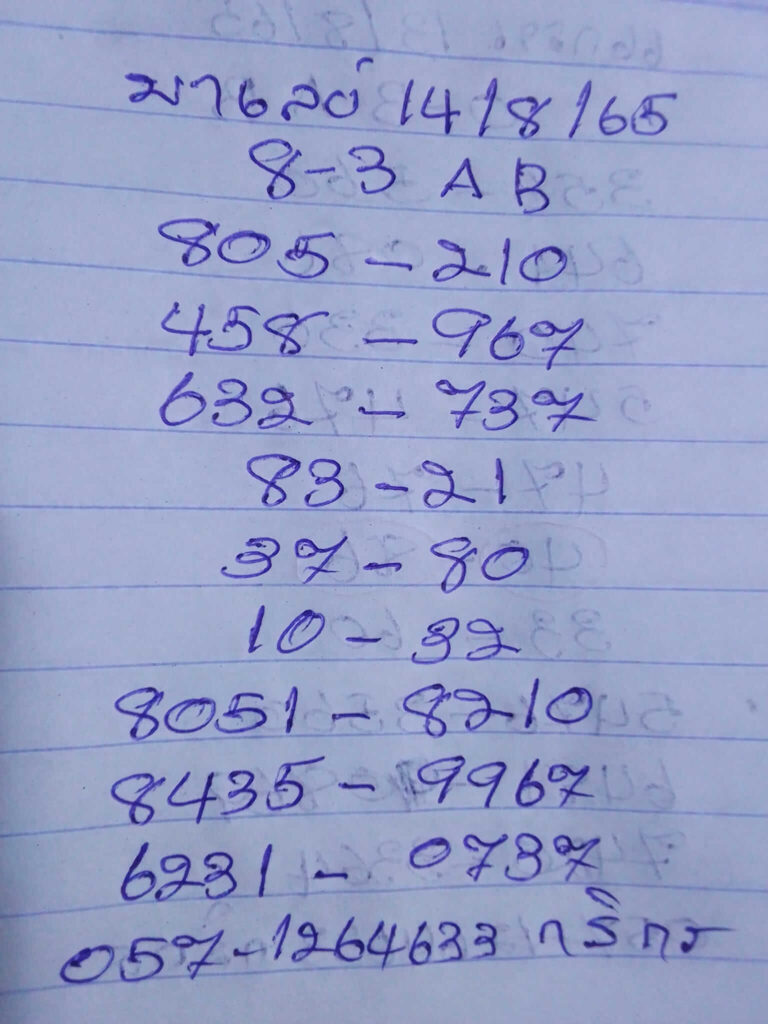 มาเลย์ 14/8/65
8-3 A B
805 - 210
458 - 967
632 - 737
83 - 21
37 - 80
10 - 32
8051 - 8210
8435 - 9967
6231 - 0737
057-1264633